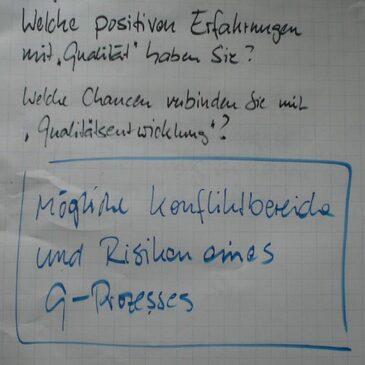 Welche positiven Erfahrungen
mit „Qualität" haben Sie?
Welche Chancen verbinden Sie mit
„Qualitätsentwicklung"?
Mögliche Konfliktbereiche
und Risiken eines
Q-Prozesses